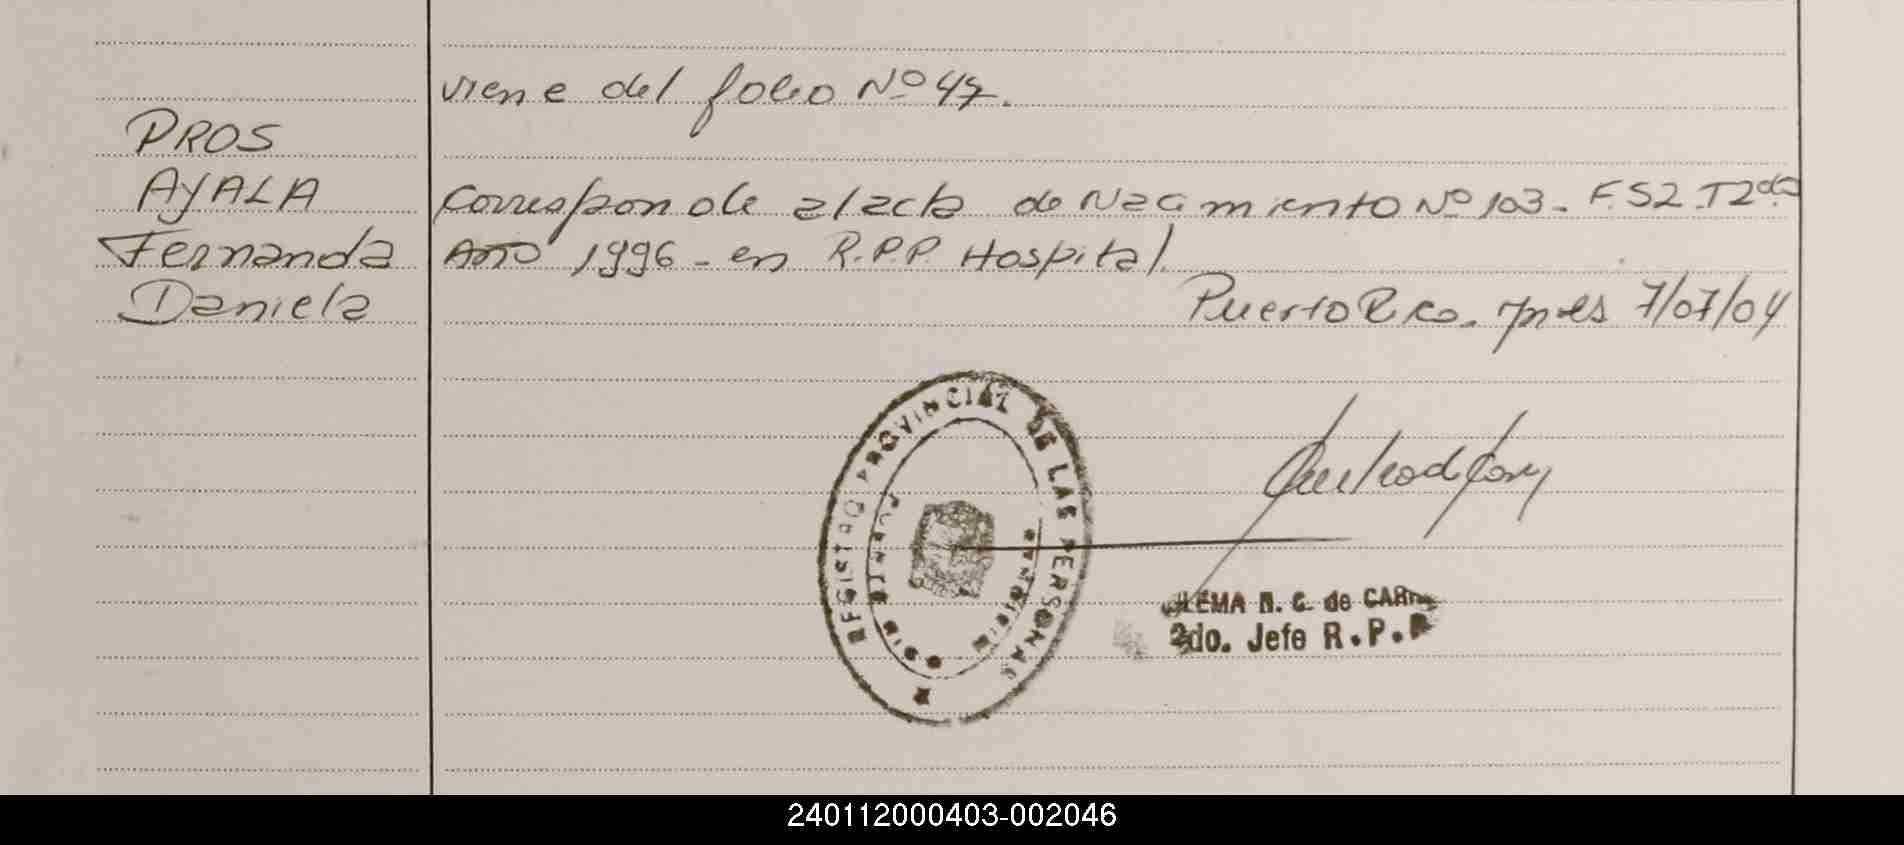 viene del folio Nº 47.
PROS
AYALA
Fernanda
Daniela
Corresponde al acta de Nacimiento Nº 103 - F. 52 T 2do
Año 1996 - en R.P.P. Hospital.
Puerto Rico. Mnes 7/07/04
REGISTRO PROVINCIAL DE LAS PERSONAS
MISIONES
de CAR
2do. Jefe R.P.P
240112000403-002046